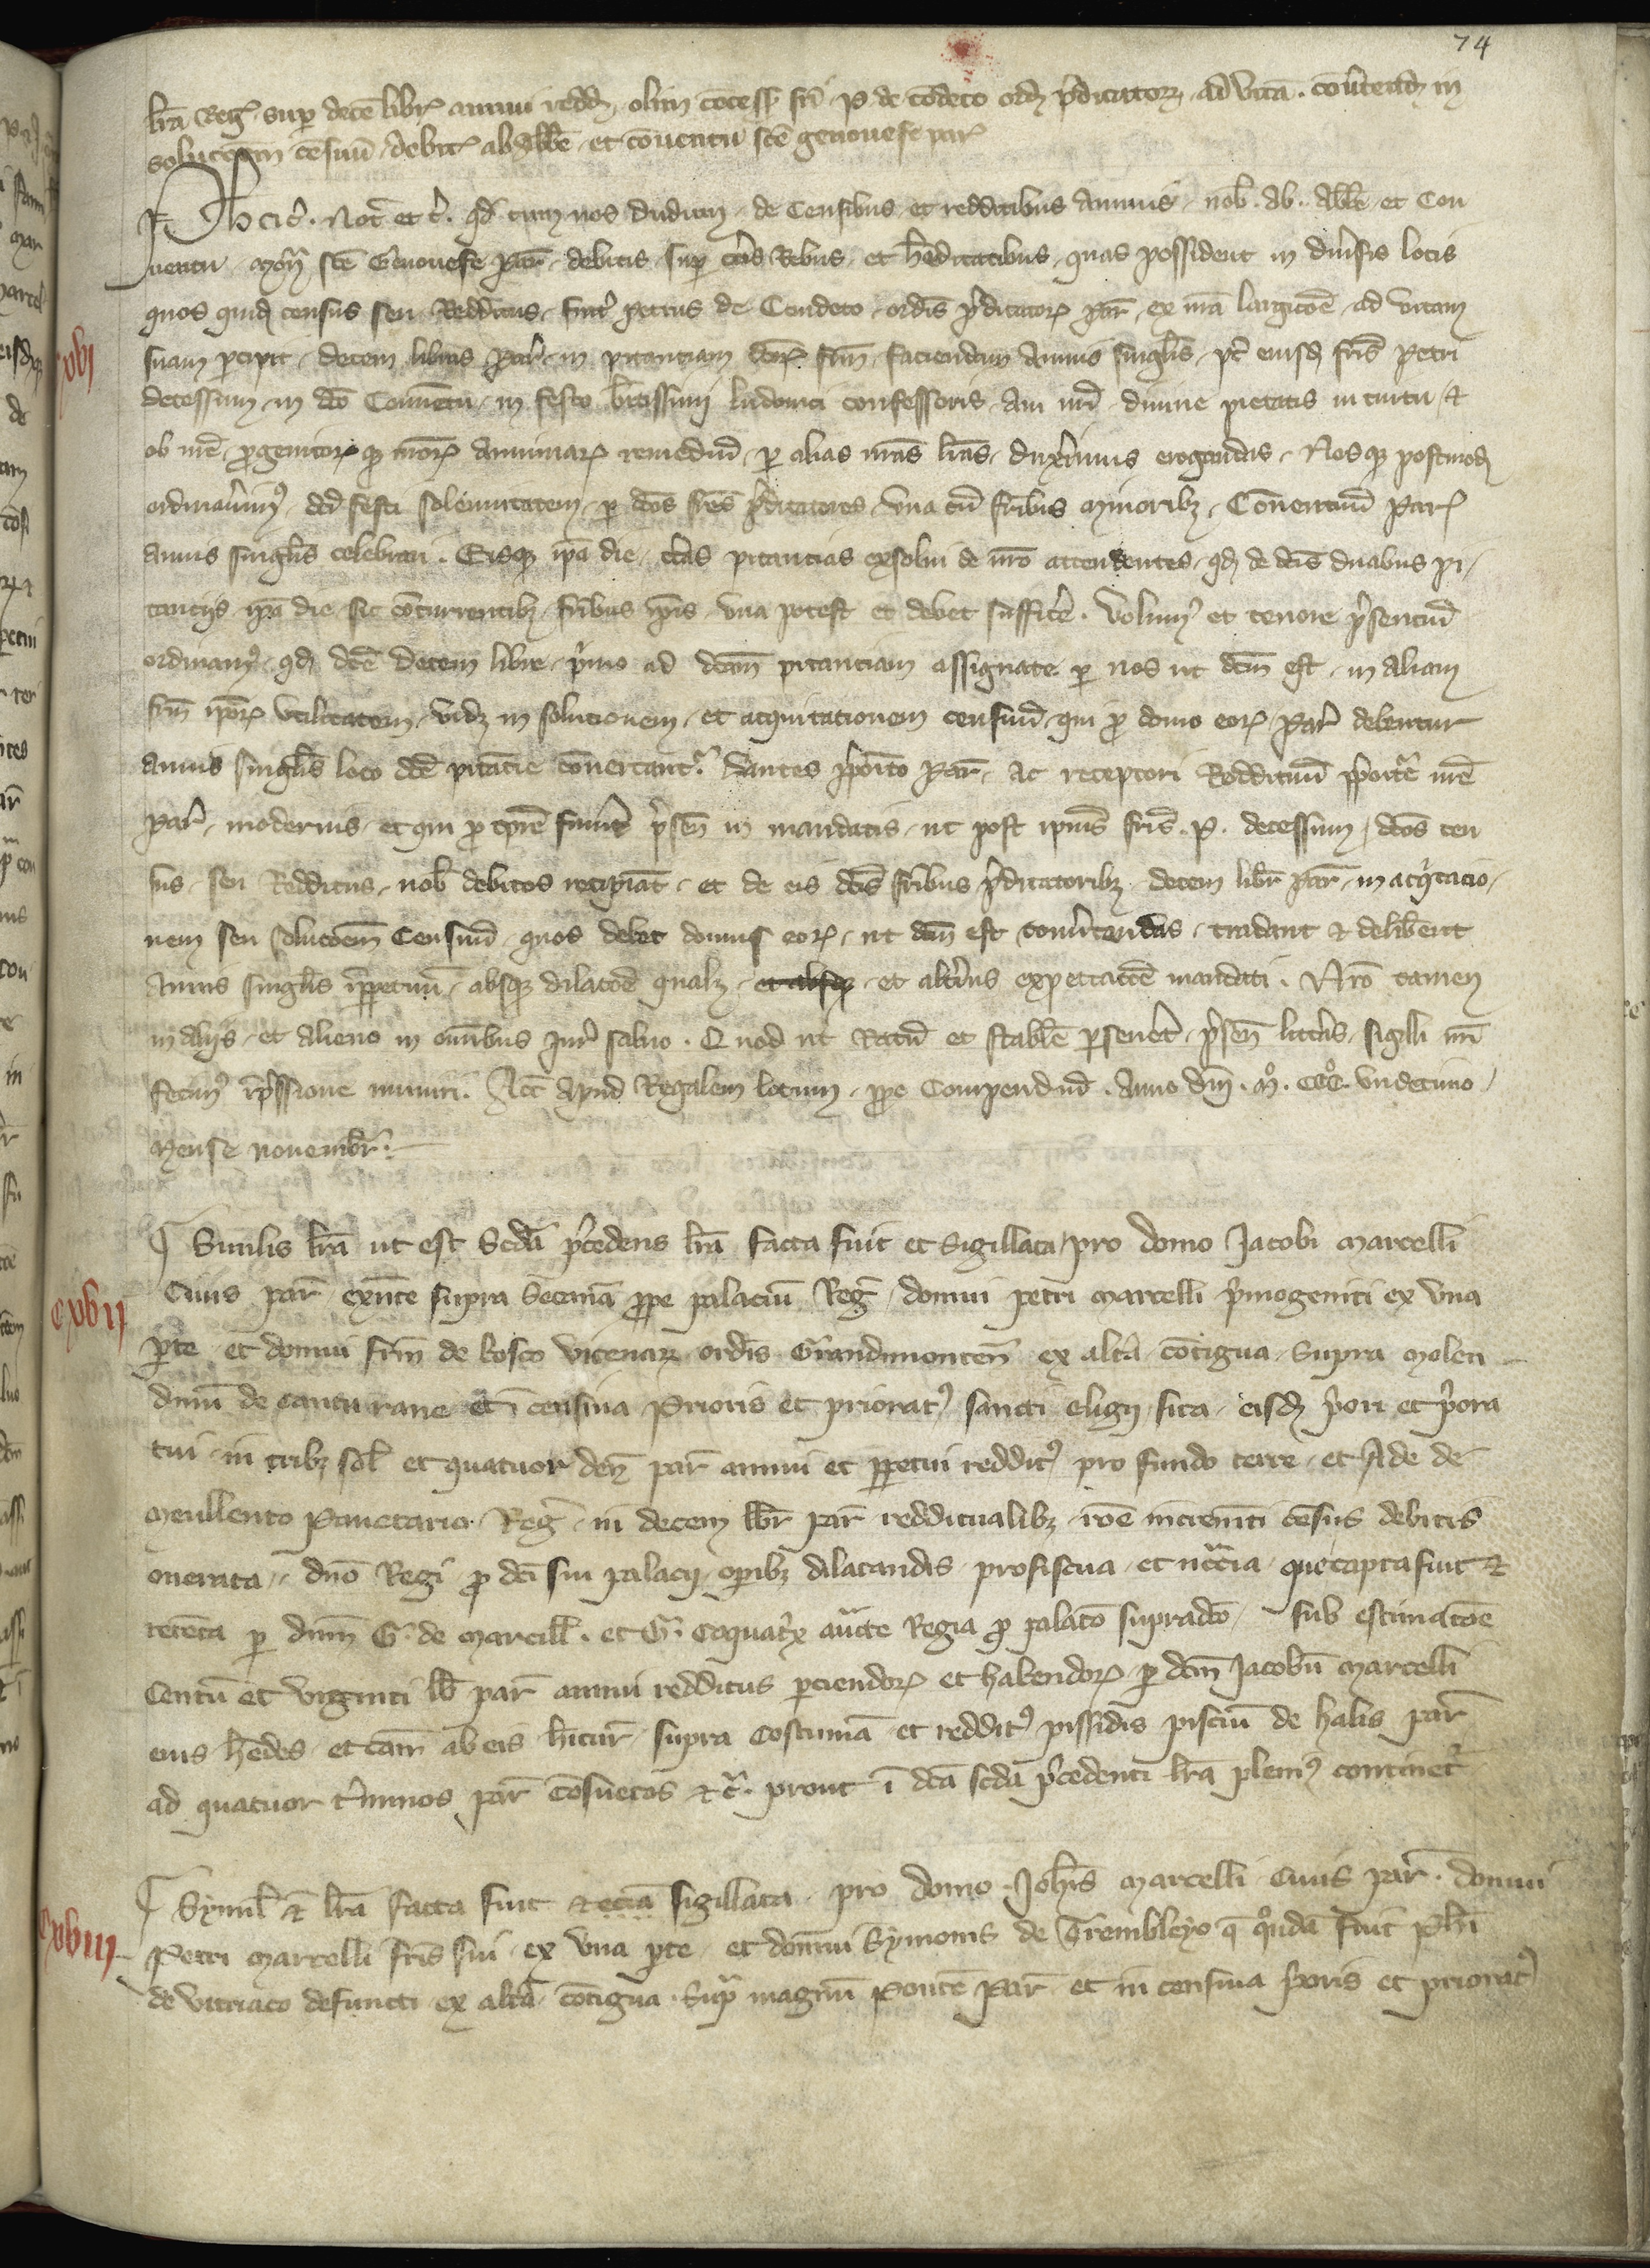 74
lr̄a Reḡ sup̄ decē libr̄ annui redd̄ olim cōcess̄ fr̄i P. de Condeto ord̄ p̄dicator̄ ad vitā . cōūtend̄ in
soluc̄oem cēsuū debit̄ ab abb̄e et cōuentu sc̄e genouefe par̄
Ph c̄ . Not̄ et c̄ . qd̄ cum nos dudum de Censibus et redditibus Annuis nob̄ . Ab . Abb̄e et Con
uentu Mon̄ sc̄e Genouefe Par̄ debitis sup̄ c̄tis Rebus et h̄editatibus quas possident in diu̾sis locis
quos quid̄ census seu Redditus frat̾ Petrus de Condeto ord̄is p̄dicator̄ Par̄ ex nr̄a largic̄oe ad vitam
suam p̄cipit decem libras Par̄ in pitanciam d̄cor̄ fr̄m faciendam Annis singl̄is p̄t eiusd̄ fr̄is Petri
decessum in d̄co Conuentu in festo b̄tissimi ludouici confessoris Aui nr̄i diuine pietatis intuitu et
ob nr̄e p̄genitor̄ q̄ nr̄or̄ Animar̄ remediū p̄ alias nr̄as lr̄as duxim̾us erogandas . Nosq̄ postmod̄
ordinau̾im̾ d̄ci festi solēnitatem p̄ d̄cos fr̄es p̄dicatores vna cū fr̄ibus Minorib̄ Conuentuū Par̄
Annis singl̄is celebrari . Eisq̄ ip̄a die c̄tas pitancias exsolui de nr̄o attendentes qd̄ de d̄cis duabus pi
tanciis ip̄a die sic cōcurrentib̄ fr̄ibus ip̄is vna potest et debet suffic̾e . Volum̾ et tenore p̄sentiū
ordinam̾ qd̄ d̄ce decem libre p̄mo ad d̄cam pitanciam assignate p̄ nos ut d̄cm est in aliam
fr̄m ip̄or̄ vtilitatem vid̄z in solutionem et acquitationem censuū qui p̄ domo eor̄ Par̄ debentur
Annis singl̄is loco d̄ce pitācie cōuertant̾ . Dantes p̄pōito Par̄ ac receptori Reddituū p̄poit̾e nr̄e
Par̄ modernis et qui p̄ tp̄re fuer̄t p̄sen̄ in mandatis ut post ip̄ius fr̄is . P . decessum d̄cos cen
sus seu Redditus nob̄ debitos recipiāt et de eis d̄cis fr̄ibus p̄dicatorib̄ decem libr̄ Par̄ in acq̾tacio
nem seu soluc̄oem Censuū quos debet domus eor̄ ut d̄cm est conu̾tendas tradant et delib̄ent
Annis singl̄is ip̄petuū absq̄ dilac̄oe qual̄z et absq̄ et alt̾ius expectac̄oe mandati . Nr̄o tamen
in aliis et alieno in om̄ibus iur̾ saluo . Quod ut Ratū et stabil̄e p̄seuet̾ p̄sen̄ litt̾is sigilli nr̄i
fecim̾ īp̄ssione muniri . Act̄ Apud Regalem locum p̄pe Compendiū . Anno dn̄i . M̊ . CCC̊ . Vndecimo
Mense nouembr̄ .
Similis lr̄a ut est Scd̄a p̄cedens lr̄a facta fuit et Sigillata pro domo Jacobi Marcelli
Ciuis par̄ ex̄nte supra Secanā p̄pe palaciū Reḡ domui petri Marcelli p̄mogeniti ex vna
p̄te et domui fr̄m de bosco vicenar̄ ordīs Grandimonten̄ ex alt̾a cōtigua supra Molen
dinū de cantu rane et ī censiua Prioris et priorat̾ sancti eligii sita eisd̄ p̄ori et p̄ora
tui in trib̄z sol̄ et quatuor den̄ par̄ annui et p̄petui reddit̾ pro fundo terre et Ade de
Meullento Panetario Reḡ in decem lib̄r par̄ redditualib̄z rōne increm̄ti cēsus debitis
onerata dn̄o Regi p̄ d̄ci sui palacii op̄ib̄z dilatandis proficua et nc̄c̄ia que capta fuit et
retēta p̄ dn̄m G. de Marcill̄ . et G. Coquat̾x auct̄te Regia p̄ palac̄o suprad̄co sub estimac̄oe
Centū et viginti lib̄ par̄ annui redditus p̄ciendor̄ et habendor̄ p̄ d̄cm Jacobū Marcelli
eius h̄edes et cām ab eis h̄itur̄ supra costumā et reddit̾ pissidis pisciū de halis par̄
ad quatuor t̾minos par̄ cōsuetos et c̾ . prout ī d̄ca scd̄a p̄cedenti lr̄a pleni̾ continet̾
Symil̄ et̄ lr̄a facta fuit et eciā sigillata pro domo Joh̄is Marcelli Ciuis par̄ . domui
Petri Marcelli fr̄is sui ex vna p̄te et domui Symonis de Trembleyo q̄ q̊ndā fuit Ph̄i
de vitriaco defuncti ex alt̾a cōtigua sup̾ magnū Pontē Par̄ et in censiua p̄oris et priorat̾
cxvi
cxvii
cxviii